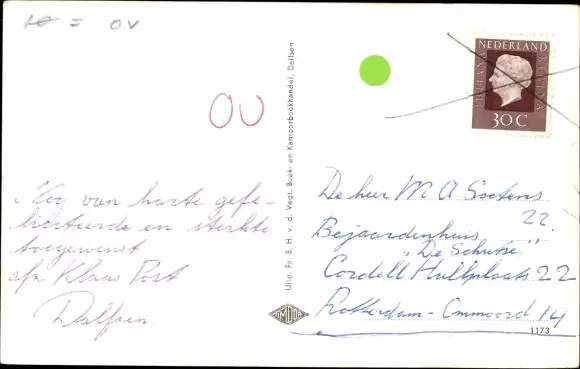 = OV
OU
Nog van harte gefe-
liciteerd en sterkte
toegewenst
afz. Klaas Post
Dalfsen.
Uitg. Fa. B. H. v. d. Vegt, Boek- en Kantoorboekhandel, Dalfsen
NEDERLAND
JULIANA REGINA
30 C
De heer M A Soetens
22.
Bejaardenhuis
"De Schutse"
Cordell Hullplaats 22
Rotterdam - Ommoord 14
1173